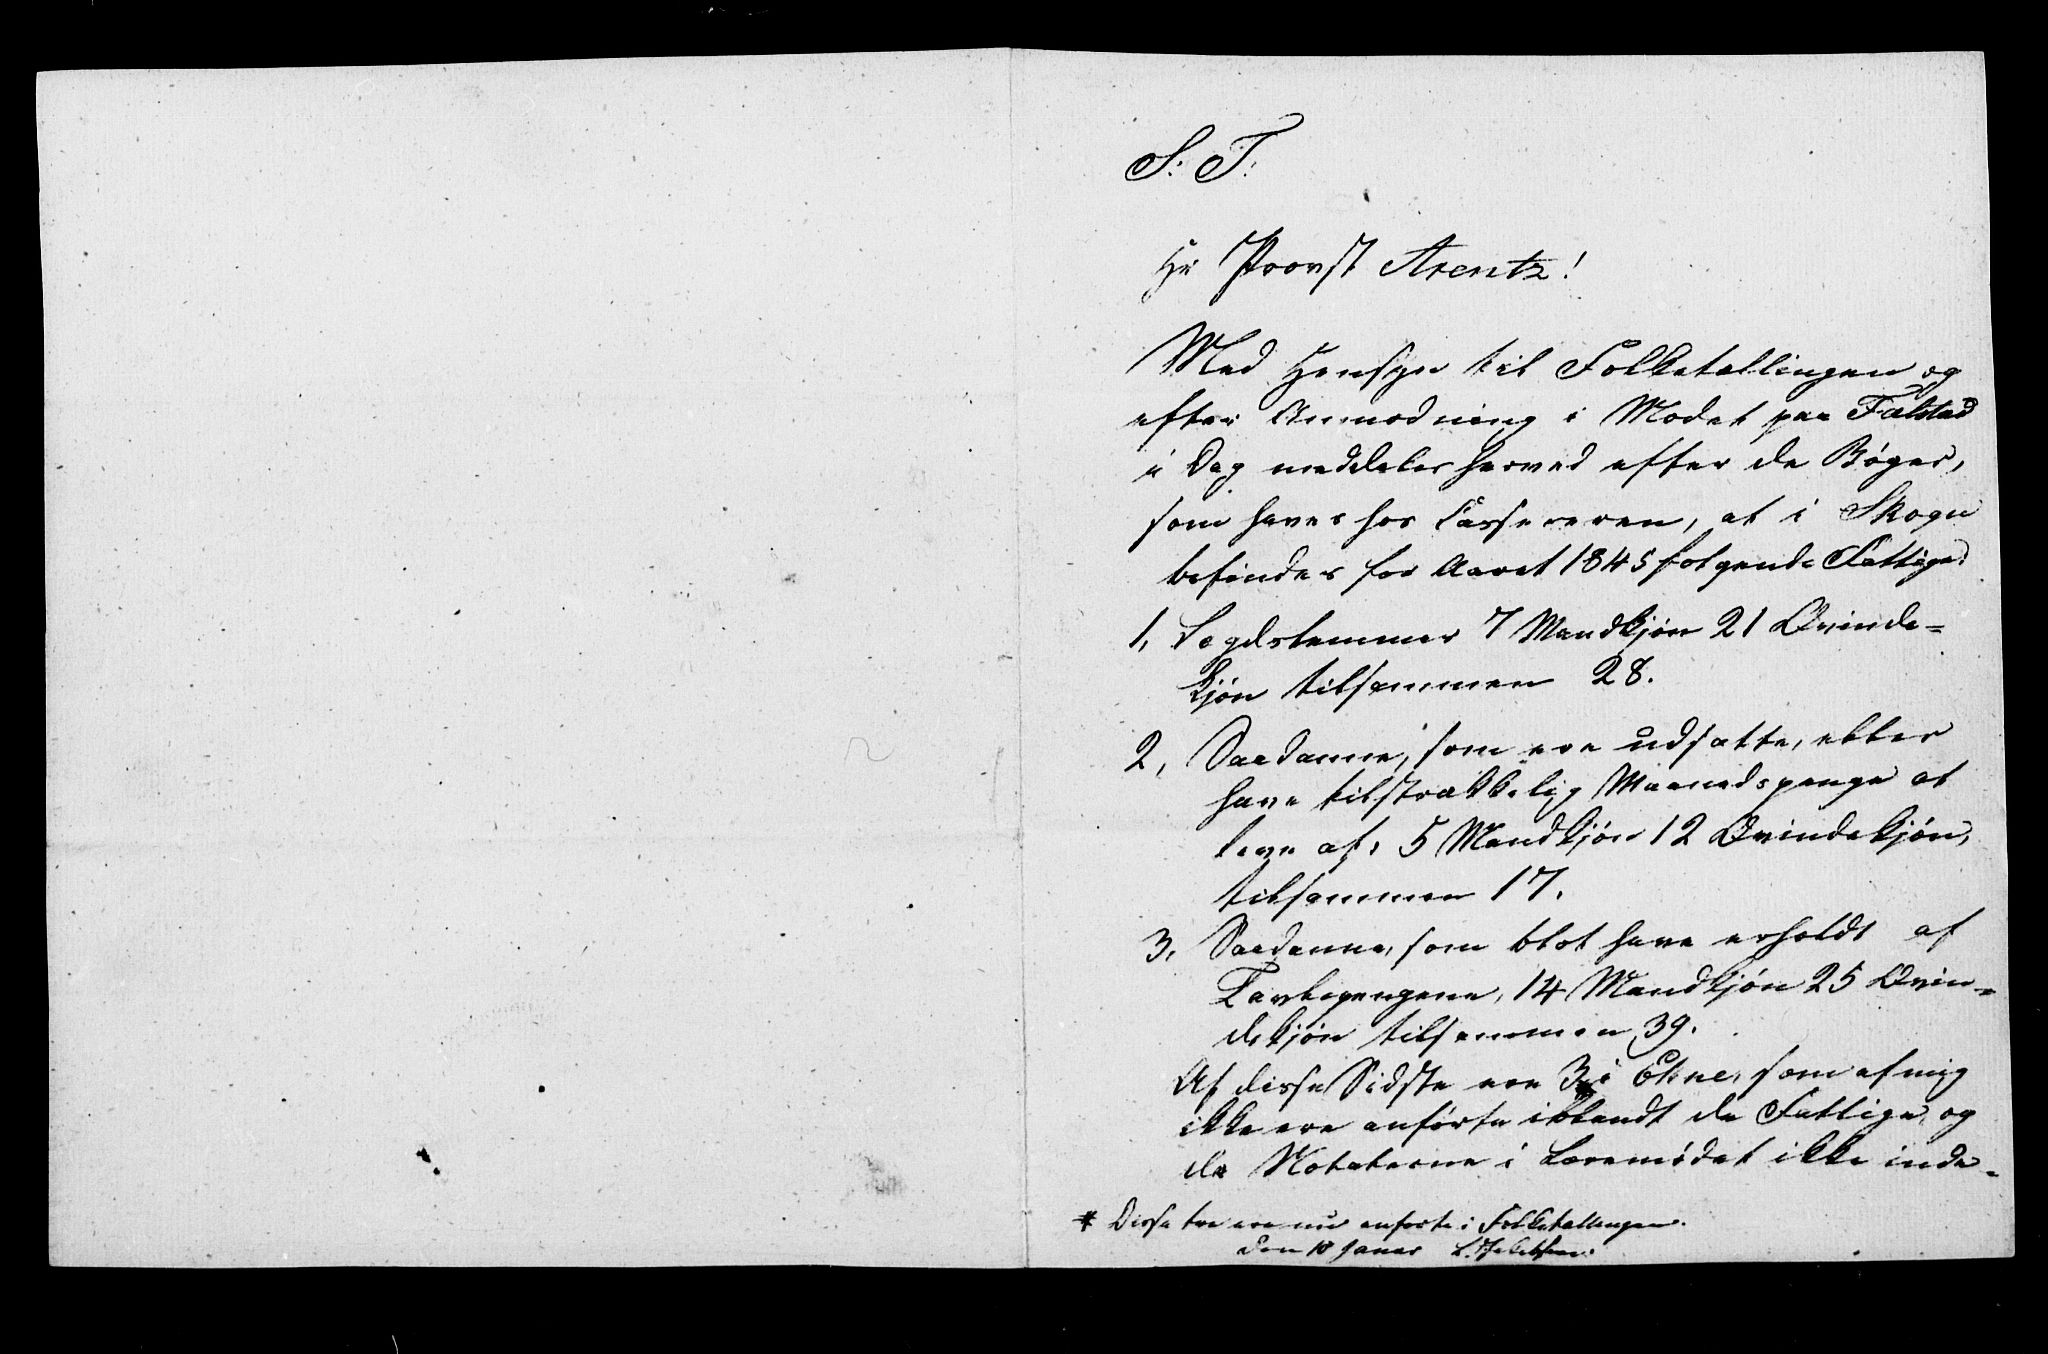 S: T:
Hr Provst Arentz!
Med Hensyn til Folketællingen og
efter Anmodning i Mødet paa Falstad
i Dag meddeles herved efter de Bøger,
som haves hos Cassereren, at i Skogn
befindes for Aaret 1845 følgende Fattige:
1, Lægdslemmer 7 Mandkjøn 21 Qvinde=
kjøn tilsammen 28.
2, Saadanne, som ere udsatte, eller
have tilstrækkelig Maanedspenge at
leve af, 5 Mandkjøn 12 Qvindekjøn,
tilsammen 17.
3, Saadanne, som blot have erholdt af
Tavlepengene, 14 Mandkjøn 25 Qvin=
dekjøn tilsammen 39.
Af disse Sidste ere 3 i Ekne, som af mig
ikke ere anførte iblandt de Fattige, og
da Notaterne i Læremødet ikke inde=
* Disse tre ere nu anførte i Folketællingen.
den 18 Januar L.